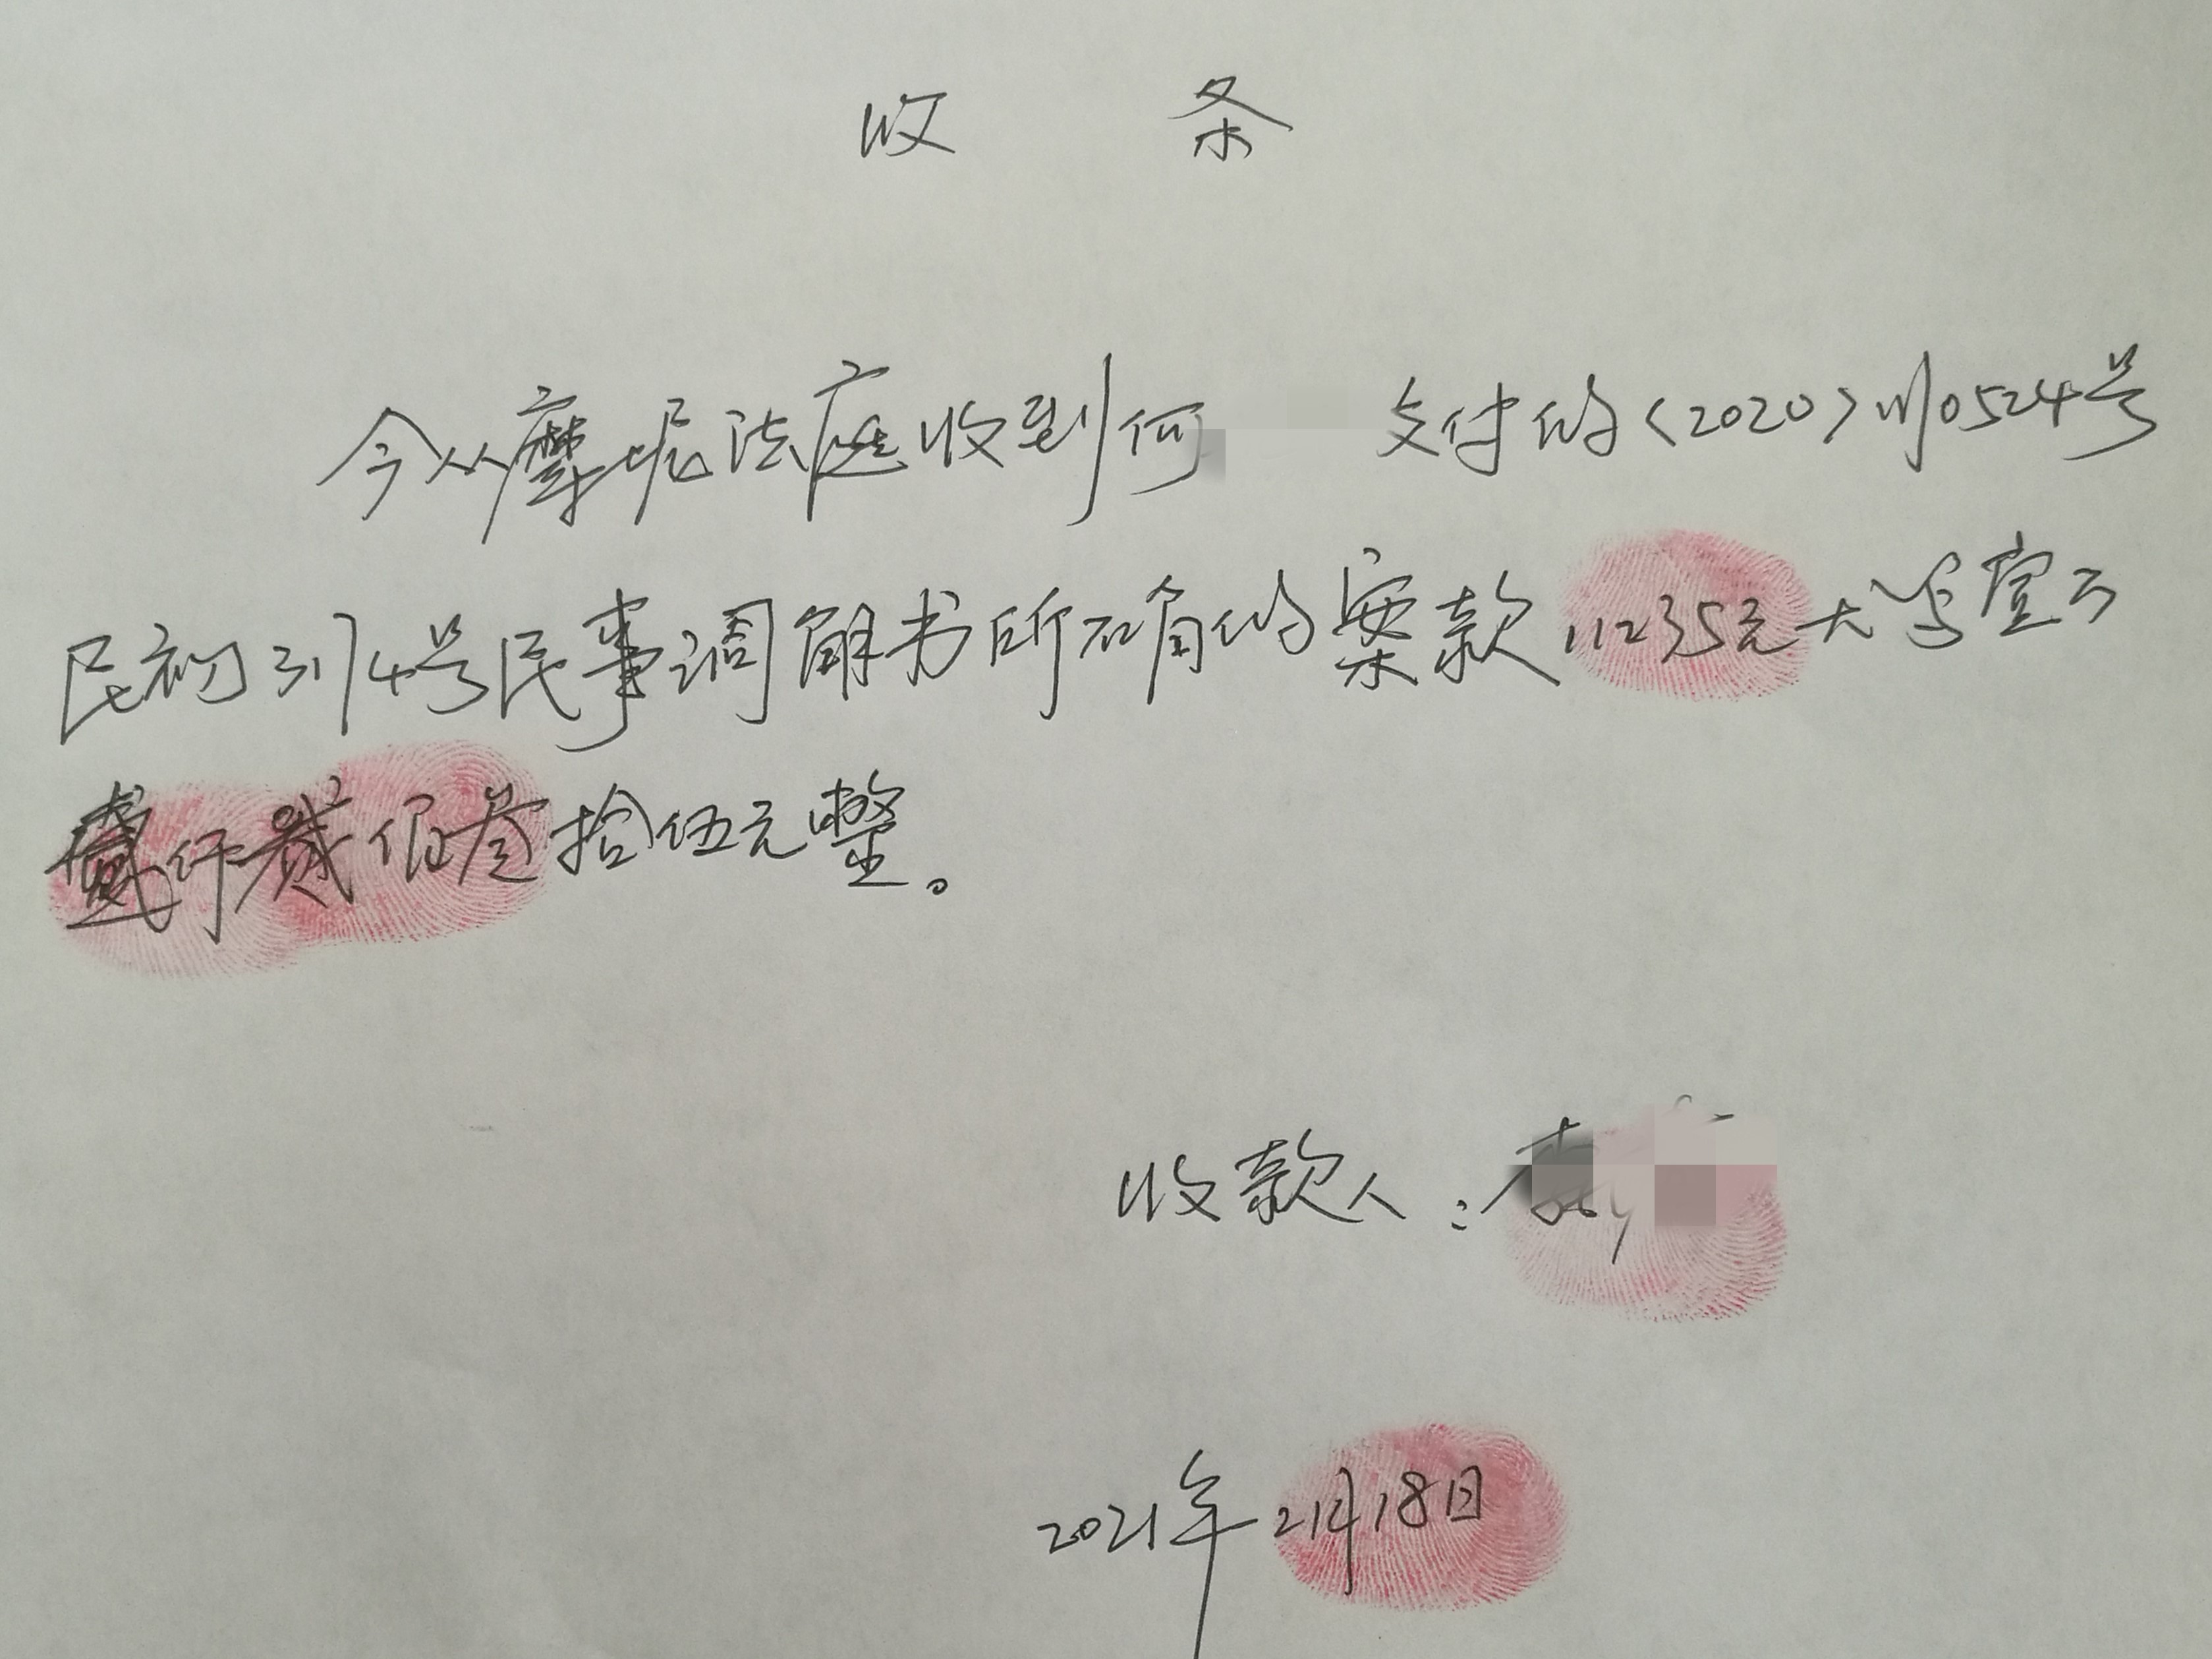 收 条
今从摩尼法庭收到何 交付的<2020>川0524号
民初3174号民事调解书所确的案款11235元大写壹万
仟贰佰叁拾伍元整。
收款人:李
2021年2月18日